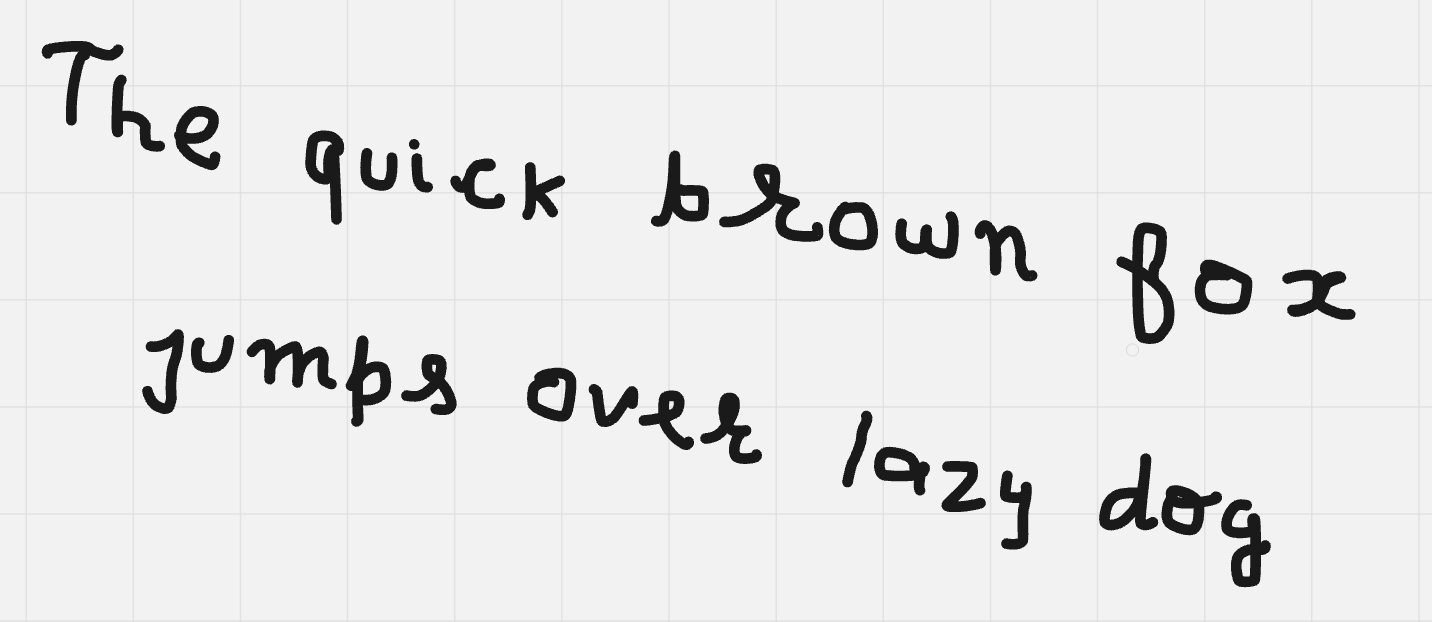 The quick brown fox
jumps over lazy dog